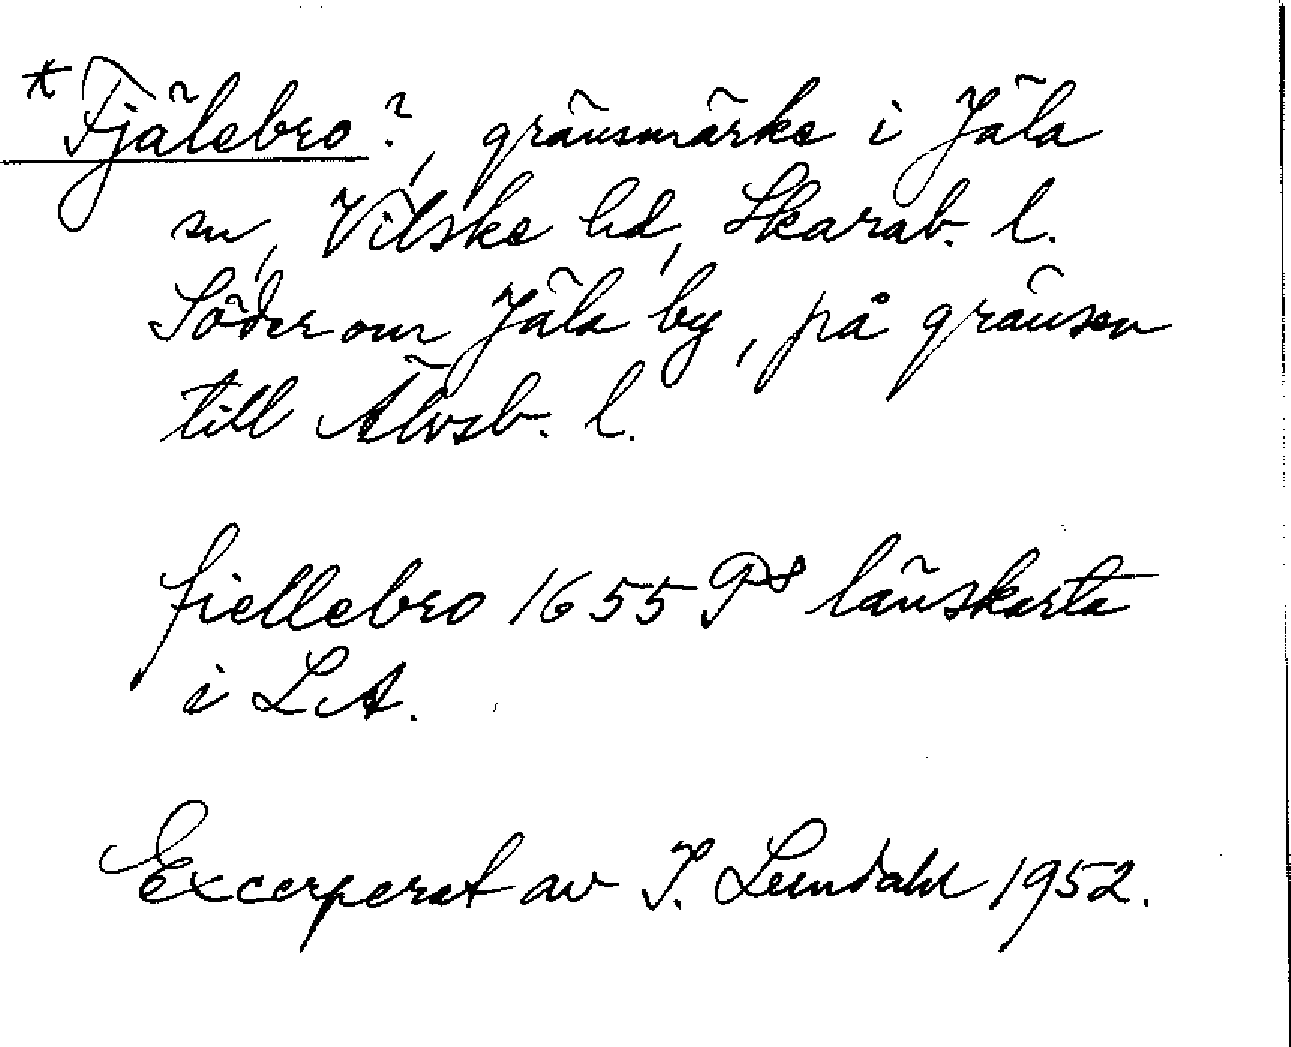 *Fjälebro?, gränsmärke i Jäla
sn, Vilske hd, Skarab. l.
Söder om Jäla by, på gränsen
till Älvsb. l.
fiellebro 1655 P8 länskarta
i LA.
Excerperat av I. Lundahl 1952.